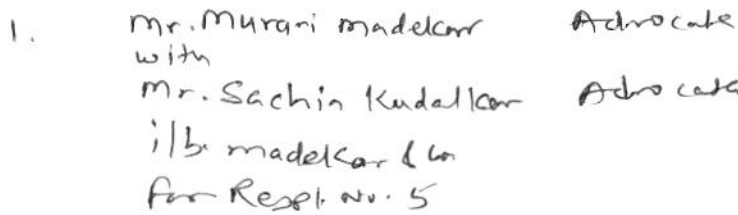 1. Mr. Murari Madelkar Advocate
with
Mr. Sachin Kudalkar Advocate
i/b. Madelkar & Co
for Respt. No. 5